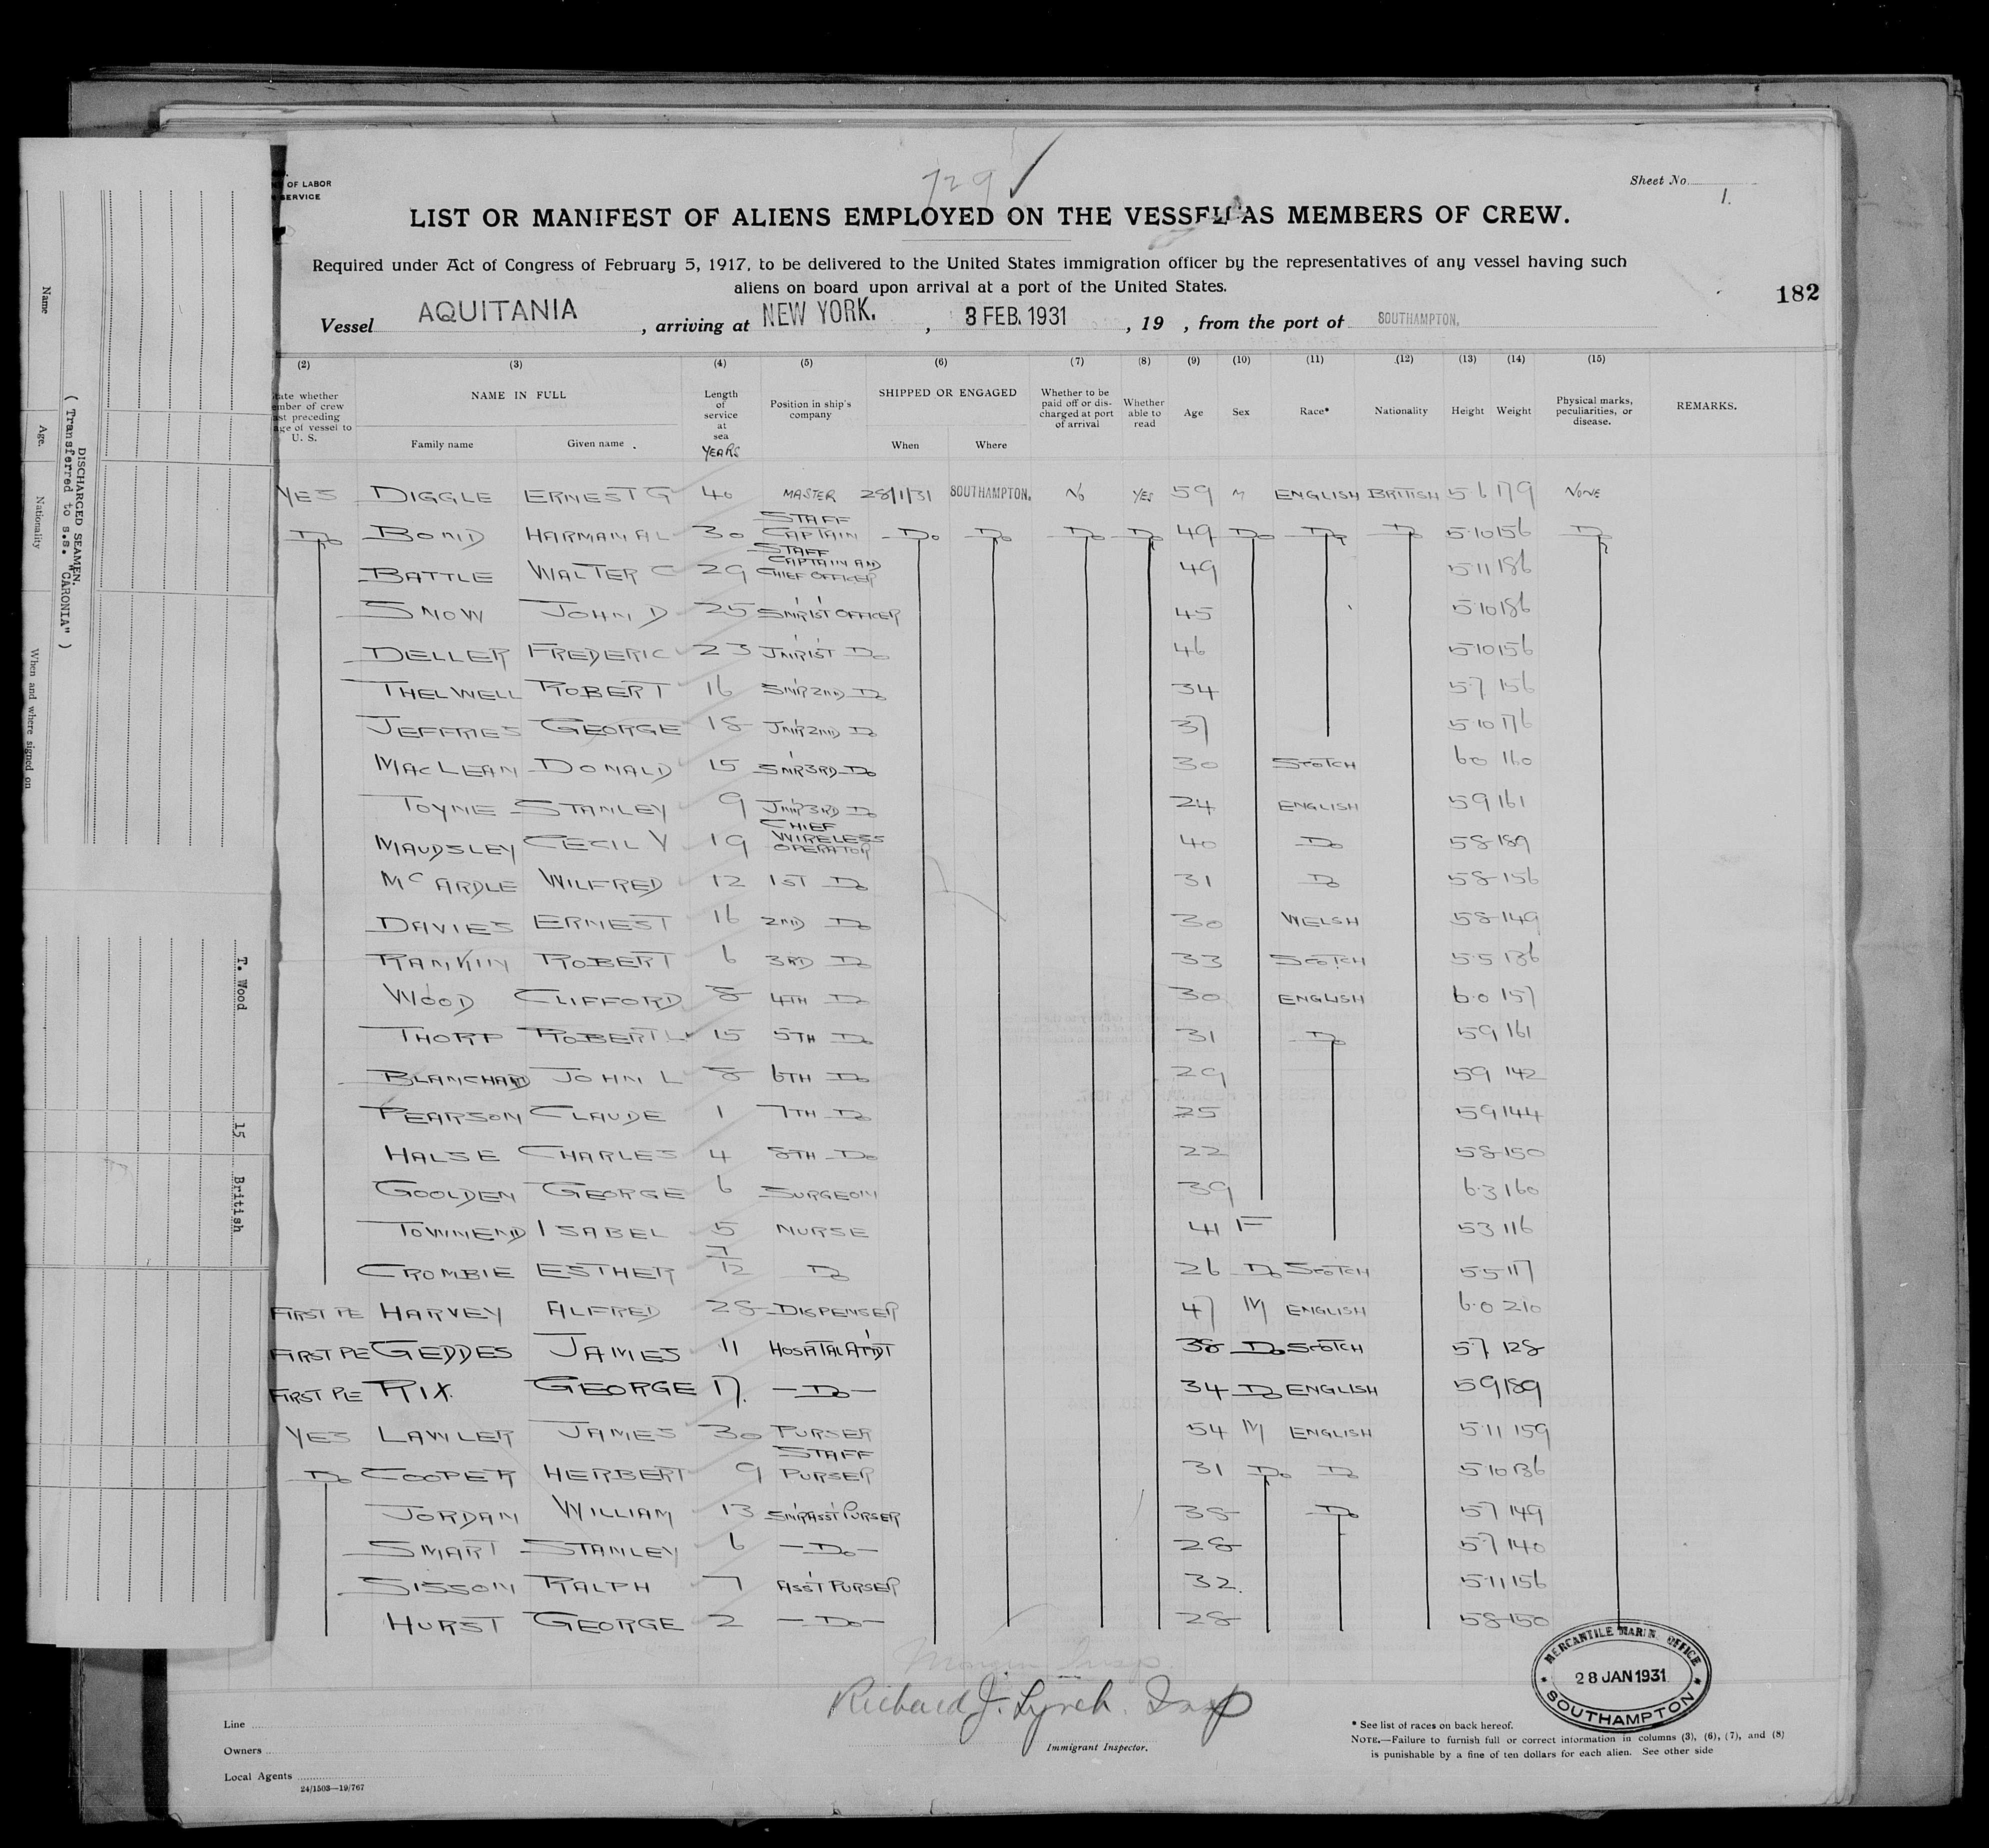 OF LABOR
SERVICE
729
Sheet No. 1.
LIST OR MANIFEST OF ALIENS EMPLOYED ON THE VESSEL AS MEMBERS OF CREW.
Required under Act of Congress of February 5, 1917, to be delivered to the United States immigration officer by the representatives of any vessel having such
aliens on board upon arrival at a port of the United States.
182
Vessel AQUITANIA, arriving at NEW YORK., 3 FEB. 1931, 19 , from the port of SOUTHAMPTON.
(2) (3) (4) (5) (6) (7) (8) (9) (10) (11) (12) (13) (14) (15)
State whether member of crew last preceding voyage of vessel to U. S. NAME IN FULL Family name Given name Length of service at sea YEARS Position in ship's company SHIPPED OR ENGAGED When Where Whether to be paid off or discharged at port of arrival Whether able to read Age Sex Race* Nationality Height Weight Physical marks, peculiarities, or disease. REMARKS.
YES DIGGLE ERNEST G 40 MASTER 28/1/31 SOUTHAMPTON. NO YES 59 M ENGLISH BRITISH 5 6 179 NONE
Do BOND HARMAN AL 30 STAFF CAPTAIN Do Do Do Do 49 Do Do Do 5 10 156 Do
BATTLE WALTER C 29 STAFF CAPTAIN AND CHIEF OFFICER 49 5 11 186
SNOW JOHN D 25 SNR 1ST OFFICER 45 5 10 186
DELLER FREDERIC 23 JNR 1ST Do 46 5 10 156
THELWELL ROBERT 16 SNR 2ND Do 34 5 7 156
JEFFRIES GEORGE 18 JNR 2ND Do 37 5 10 176
MACLEAN DONALD 15 SNR 3RD Do 30 SCOTCH 6 0 160
TOYNE STANLEY 9 JNR 3RD Do 24 ENGLISH 5 9 161
MAUDSLEY CECIL V 19 CHIEF WIRELESS OPERATOR 40 Do 5 8 189
McARDLE WILFRED 12 1ST Do 31 Do 5 8 156
DAVIES ERNEST 16 2ND Do 30 WELSH 5 8 149
RANKIN ROBERT 6 3RD Do 33 SCOTCH 5 5 136
WOOD CLIFFORD 8 4TH Do 30 ENGLISH 6 0 157
THORP ROBERT L 15 5TH Do 31 Do 5 9 161
BLANCHARD JOHN L 8 6TH Do 29 5 9 142
PEARSON CLAUDE 1 7TH Do 25 5 9 144
HALSE CHARLES 4 8TH Do 22 5 8 150
GOOLDEN GEORGE 6 SURGEON 39 6 3 160
TOWNEND ISABEL 5 NURSE 41 F 5 3 116
CROMBIE ESTHER 7/12 Do 26 Do SCOTCH 5 5 117
FIRST PE HARVEY ALFRED 28 DISPENSER 47 M ENGLISH 6 0 210
FIRST PE GEDDES JAMES 11 HOSPITAL ATT'DT 38 Do SCOTCH 5 7 128
FIRST PE RIX. GEORGE 17. —Do— 34 Do ENGLISH 5 9 189
YES LAWLER JAMES 30 PURSER 54 M ENGLISH 5 11 159
Do COOPER HERBERT 9 STAFF PURSER 31 Do Do 5 10 136
JORDAN WILLIAM 13 SNR ASS'T PURSER 38 Do 5 7 149
SMART STANLEY 6 —Do— 28 5 7 140
SISSON RALPH 7 ASS'T PURSER 32. 5 11 156
HURST GEORGE 2 —Do— 28 5 8 150
MERCANTILE MARINE OFFICE
28 JAN 1931
SOUTHAMPTON
Richard J. Lynch. Insp
Immigrant Inspector.
Line
Owners
Local Agents
24/1503—19/767
* See list of races on back hereof.
NOTE.—Failure to furnish full or correct information in columns (3), (6), (7), and (8)
is punishable by a fine of ten dollars for each alien. See other side
DISCHARGED SEAMEN.
( Transferred to s.s. "CARONIA" )
Name Age. Nationality When and where signed on
T. Wood 15 British